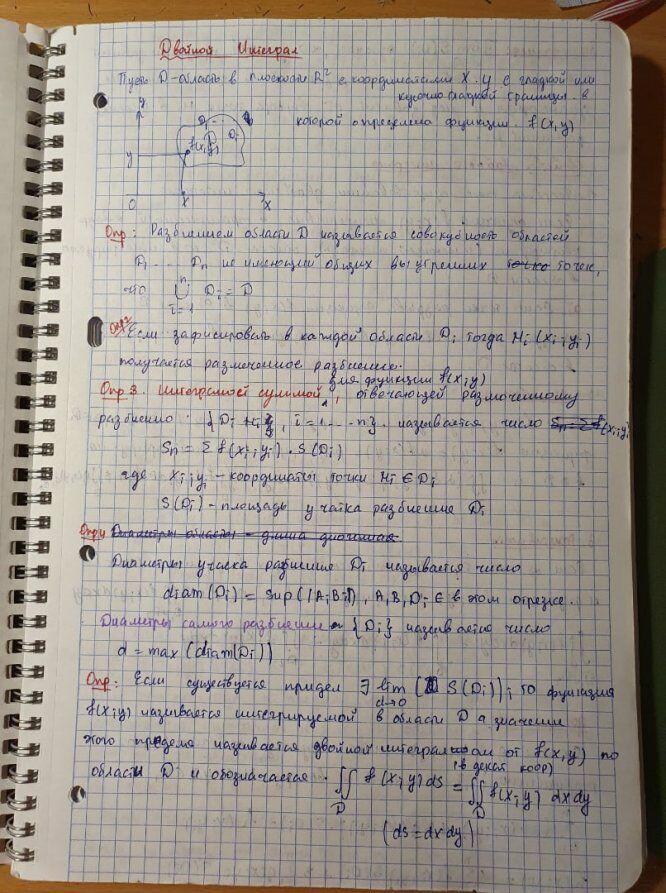 Двойной Интеграл
Пусть D-область в плоскости R² с координатами x, y с гладкой или
кусочно гладкой границы. в
которой определена функция f(x,y)
y
D₁ ...
Dᵢ
f(x,y)
D
y
0 x x
Опр: Разбиением области D называется совокубность областей
D₁ .... Dₙ не имеющий общих внутренних точек,
что ∪ Dᵢ = D
n
i=1
Опр² Если зафиксировать в каждой области Dᵢ тогда Mᵢ(xᵢ; yᵢ)
получается размеченное разбиение.
для функции f(x;y)
Опр 3. Интегралной суммой, отвечающей размоченному
разбиению {Dᵢ Mᵢ}, i=1...n}. называется число Sₙ = Σ f(xᵢ; yᵢ
Sₙ = Σ f(xᵢ; yᵢ) · S(Dᵢ)
где xᵢ; yᵢ - координаты точки Mᵢ ∈ Dᵢ
S(Dᵢ) - площадь участка разбиение Dᵢ
Опр4 Диаметры область - длина
Диаметры участка разбиение Dᵢ называется число
diam(Dᵢ) = sup(|AᵢBᵢ|), A, B, Dᵢ ∈ в этом отрезке.
Диаметры самого разбиение {Dᵢ} называется число
d = max(diam(Dᵢ))
Опр: Если существуется придел ∃ lim ( S(Dᵢ)); то функция
d→0
f(x;y) называется интегрируемой в области D а значение
этого предела называется двойном интегралом от f(x,y) по
(в декат коор)
области D и обозначается. ∬ f(x;y) ds = ∬ f(x;y) dxdy
D D
(ds = dxdy)